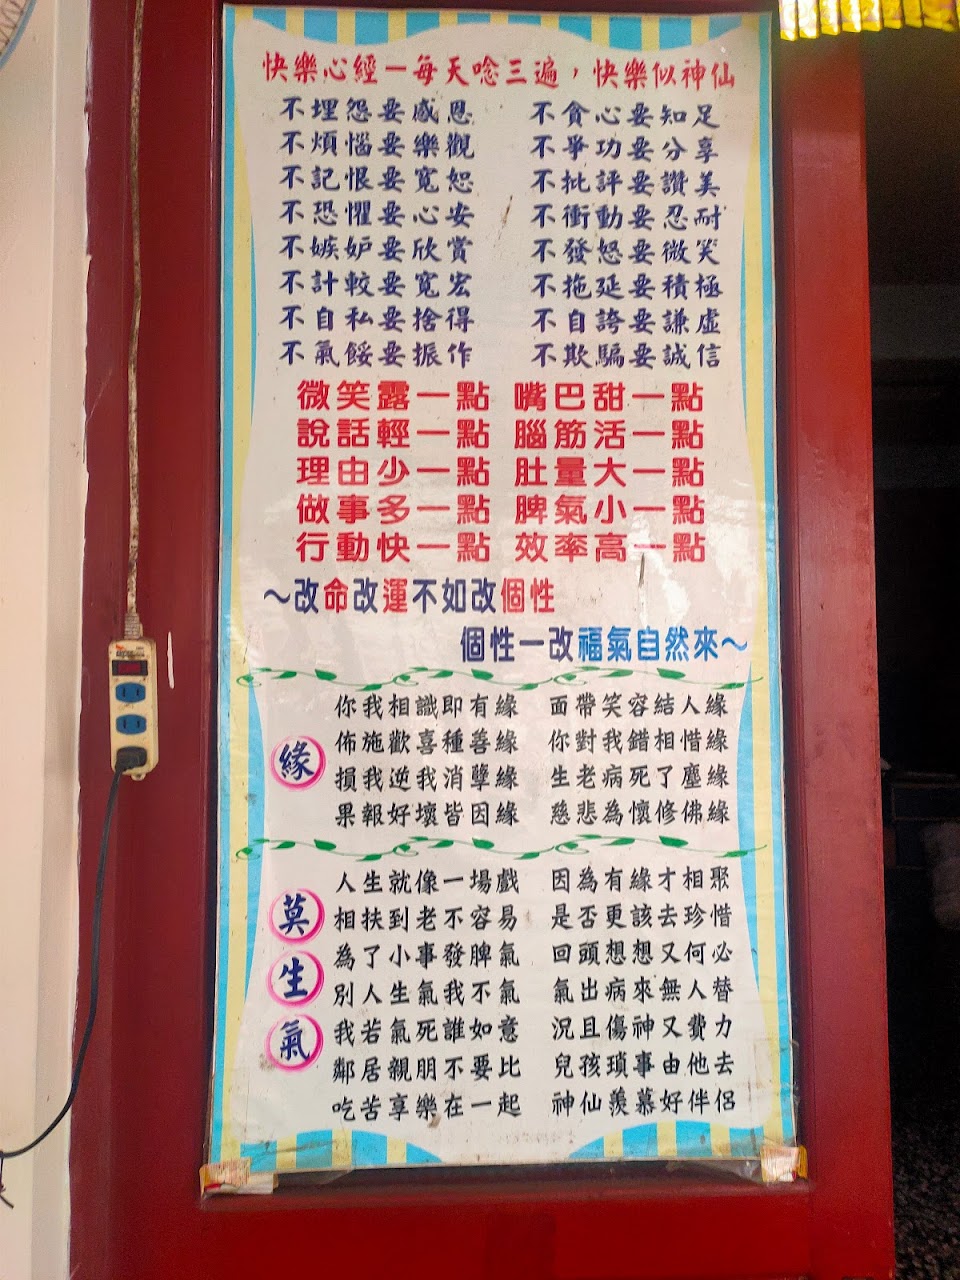 快樂心經－每天唸三遍，快樂似神仙
不埋怨要感恩 不貪心要知足
不煩惱要樂觀 不爭功要分享
不記恨要寬恕 不批評要讚美
不恐懼要心安 不衝動要忍耐
不嫉妒要欣賞 不發怒要微笑
不計較要寬宏 不拖延要積極
不自私要捨得 不自誇要謙虛
不氣餒要振作 不欺騙要誠信
微笑露一點 嘴巴甜一點
說話輕一點 腦筋活一點
理由少一點 肚量大一點
做事多一點 脾氣小一點
行動快一點 效率高一點
～改命改運不如改個性
個性一改福氣自然來～
緣
你我相識即有緣 面帶笑容結人緣
佈施歡喜種善緣 你對我錯相惜緣
損我逆我消孽緣 生老病死了塵緣
果報好壞皆因緣 慈悲為懷修佛緣
莫生氣
人生就像一場戲 因為有緣才相聚
相扶到老不容易 是否更該去珍惜
為了小事發脾氣 回頭想想又何必
別人生氣我不氣 氣出病來無人替
我若氣死誰如意 況且傷神又費力
鄰居親朋不要比 兒孩瑣事由他去
吃苦享樂在一起 神仙羨慕好伴侶